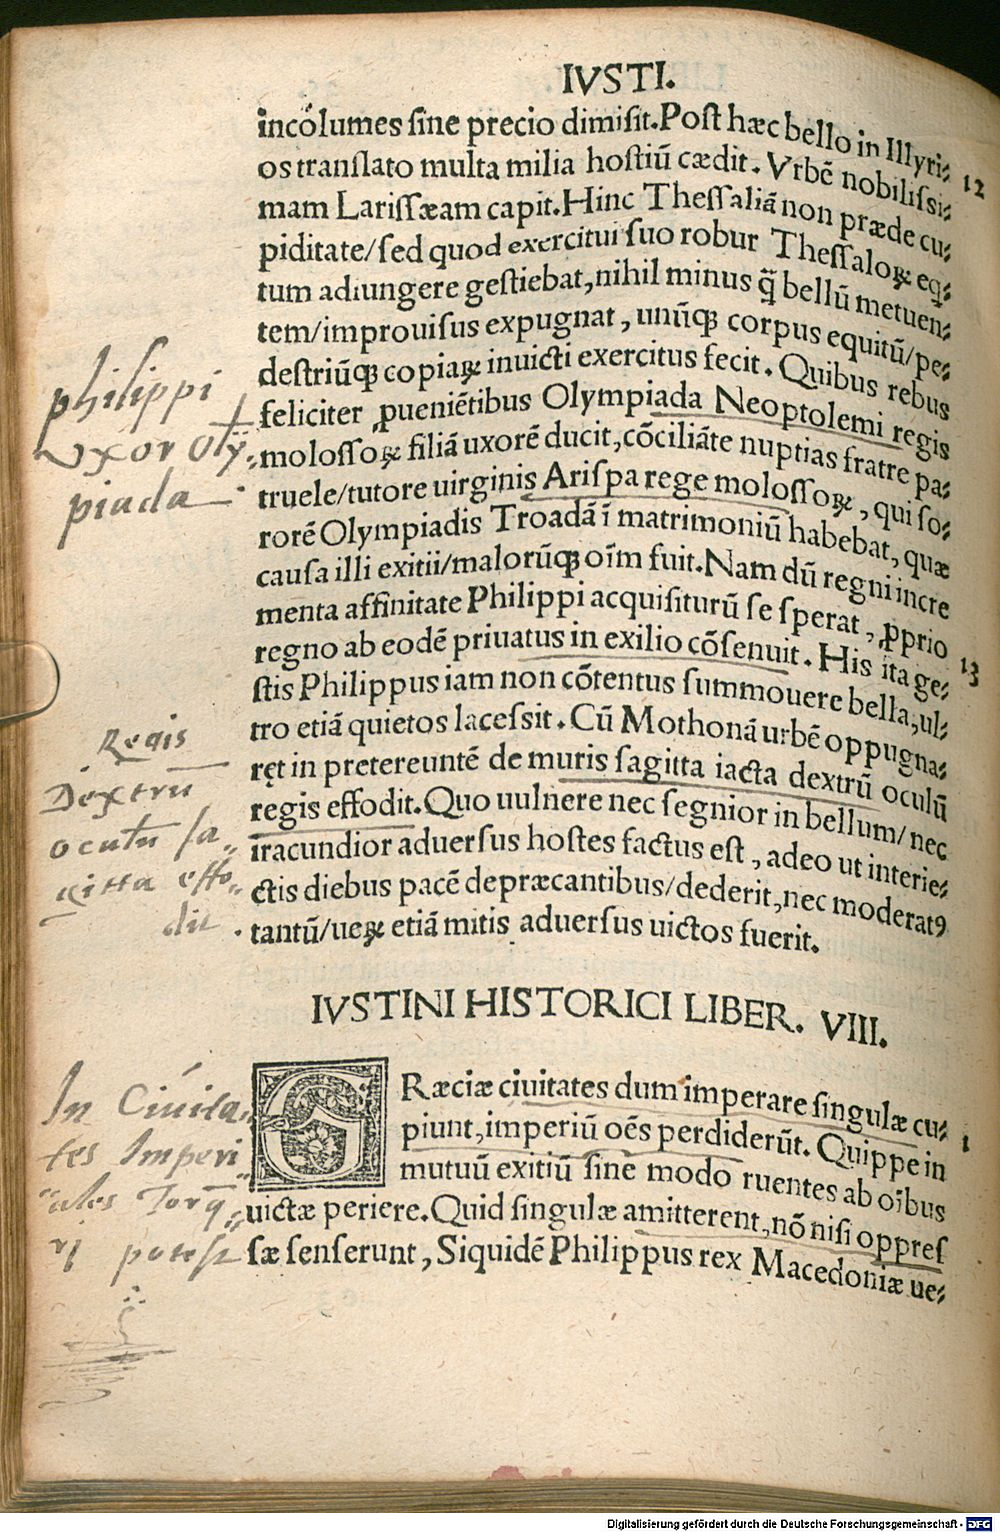 IVSTI.
incólumes sine precio dimisit. Post hæc bello in Illyri⸗
os translato multa milia hostiū cædit. Vrbē nobilissi⸗
mam Larissæam capit. Hinc Thessaliā non præde cu⸗
piditate/sed quod exercitui suo robur Thessaloꝝ eq̄⸗
tum adiungere gestiebat, nihil minus q̄ bellū metuen⸗
tem/improuisus expugnat, unūqꝫ corpus equitū/pe⸗
destriūqꝫ copiaꝝ inuicti exercitus fecit. Quibus rebus
feliciter ꝓueniētibus Olympiada Neoptolemi regis
molossoꝝ filiā uxorē ducit, cōciliāte nuptias fratre pa⸗
truele/tutore uirginis Arispa rege molossoꝝ, qui so⸗
rorē Olympiadis Troadā ī matrimoniū habebat, quæ
causa illi exitii/malorūqꝫ oīm fuit. Nam dū regni incre
menta affinitate Philippi acquisiturū se sperat, ꝓprio
regno ab eodē priuatus in exilio cōsenuit. His ita ge⸗
stis Philippus iam non cōtentus summouere bella, ul⸗
tro etiā quietos lacessit. Cū Mothonā urbē oppugna⸗
ret in pretereuntē de muris sagitta iacta dextrū oculū
regis effodit. Quo uulnere nec segnior in bellum/nec
iracundior aduersus hostes factus est, adeo ut interie⸗
ctis diebus pacē depræcantibus/dederit, nec moderatꝰ
tantū/ueꝝ etiā mitis aduersus uictos fuerit.
12
13
philippi
vxor Olȳ⸗
piada
Regis
Dextrū
oculū sa⸗
gitta effo⸗
dit.
IVSTINI HISTORICI LIBER. VIII.
GRæciæ ciuitates dum imperare singulæ cu⸗
piunt, imperiū oēs perdiderūt. Quippe in
mutuū exitiū sine modo ruentes ab oībus
uictæ periere. Quid singulæ amitterent, nō nisi oppres
sæ senserunt, Siquidē Philippus rex Macedoniæ ue⸗
1
In Ciuita⸗
tes Imperi
ales Torq̄⸗
rj potest
Digitalisierung gefördert durch die Deutsche Forschungsgemeinschaft - DFG